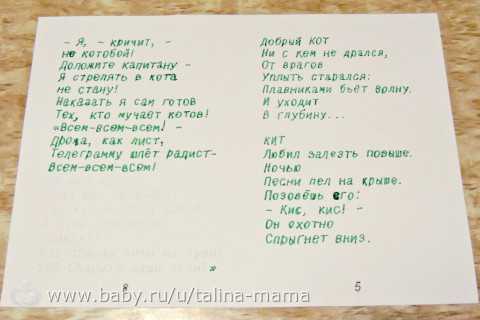 - Я, - кричит, -
не котобой!
Доложите капитану -
Я стрелять в кота
не стану!
Наказать я сам готов
Тех, кто мучает котов!
«Всем-всем-всем! -
Дрожа, как лист,
Телеграмму шлёт радист-
Всем-всем-всем!
»
8
Добрый кот
Ни с кем не дрался,
От врагов
Уплыть старался:
Плавниками бьёт волну.
И уходит
В глубину...
КИТ
Любил залезть повыше.
Ночью
Песни пел на крыше.
Позовёшь его:
- Кис, кис! -
Он охотно
Спрыгнет вниз.
5
www.baby.ru/u/talina-mama